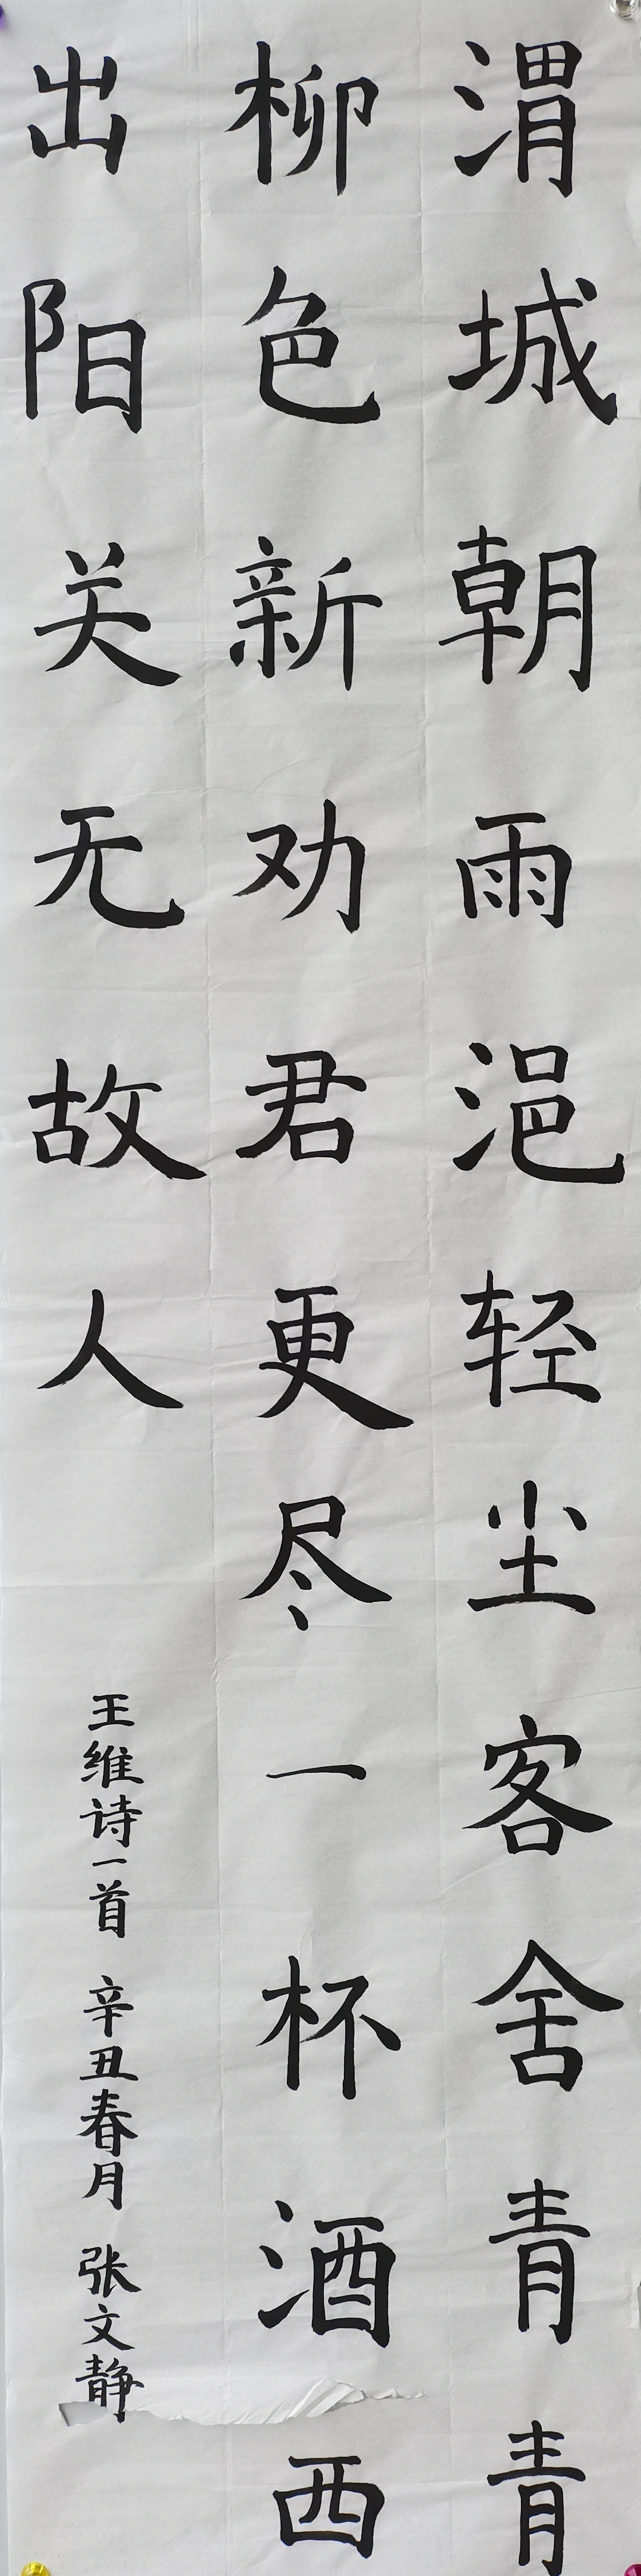 渭城朝雨浥轻尘客舍青青
柳色新劝君更尽一杯酒西
出阳关无故人
王维诗一首 辛丑春月 张文静